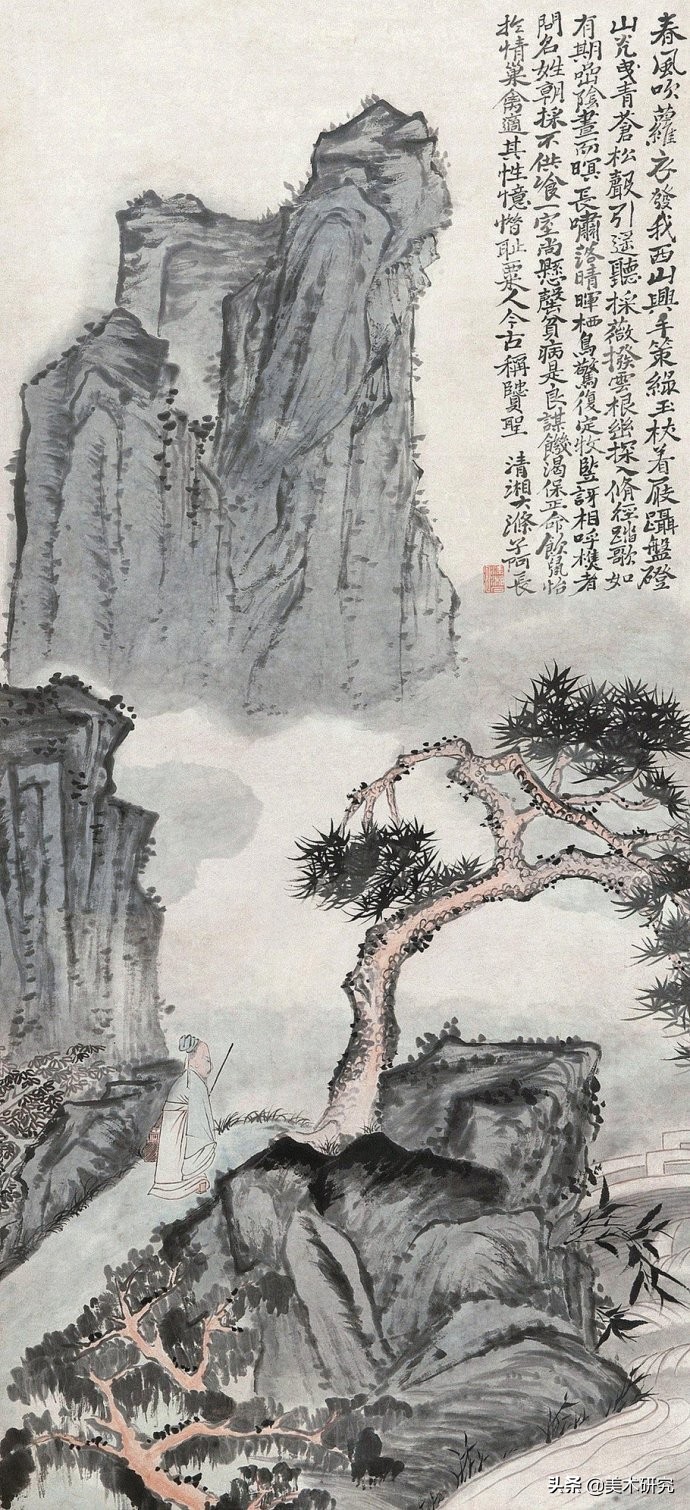 春風吹蘿衣發我西山興手策綠玉杖着屐躡盤磴
山光曳青蒼松聲引遥聽採薇撥雲根幽探入脩徑踏歌如
有期嵒陰晝而暝長嘯落晴暉栖鳥驚復定牧豎訝相呼樵者
問名姓朝採不供飡一室尚懸罄貧病是良謀饑渴保正命飲鼠怡
扵情巢禽適其性憶惜耻粟人今古稱賢聖 清湘大滌子阿長
头条 @美术研究